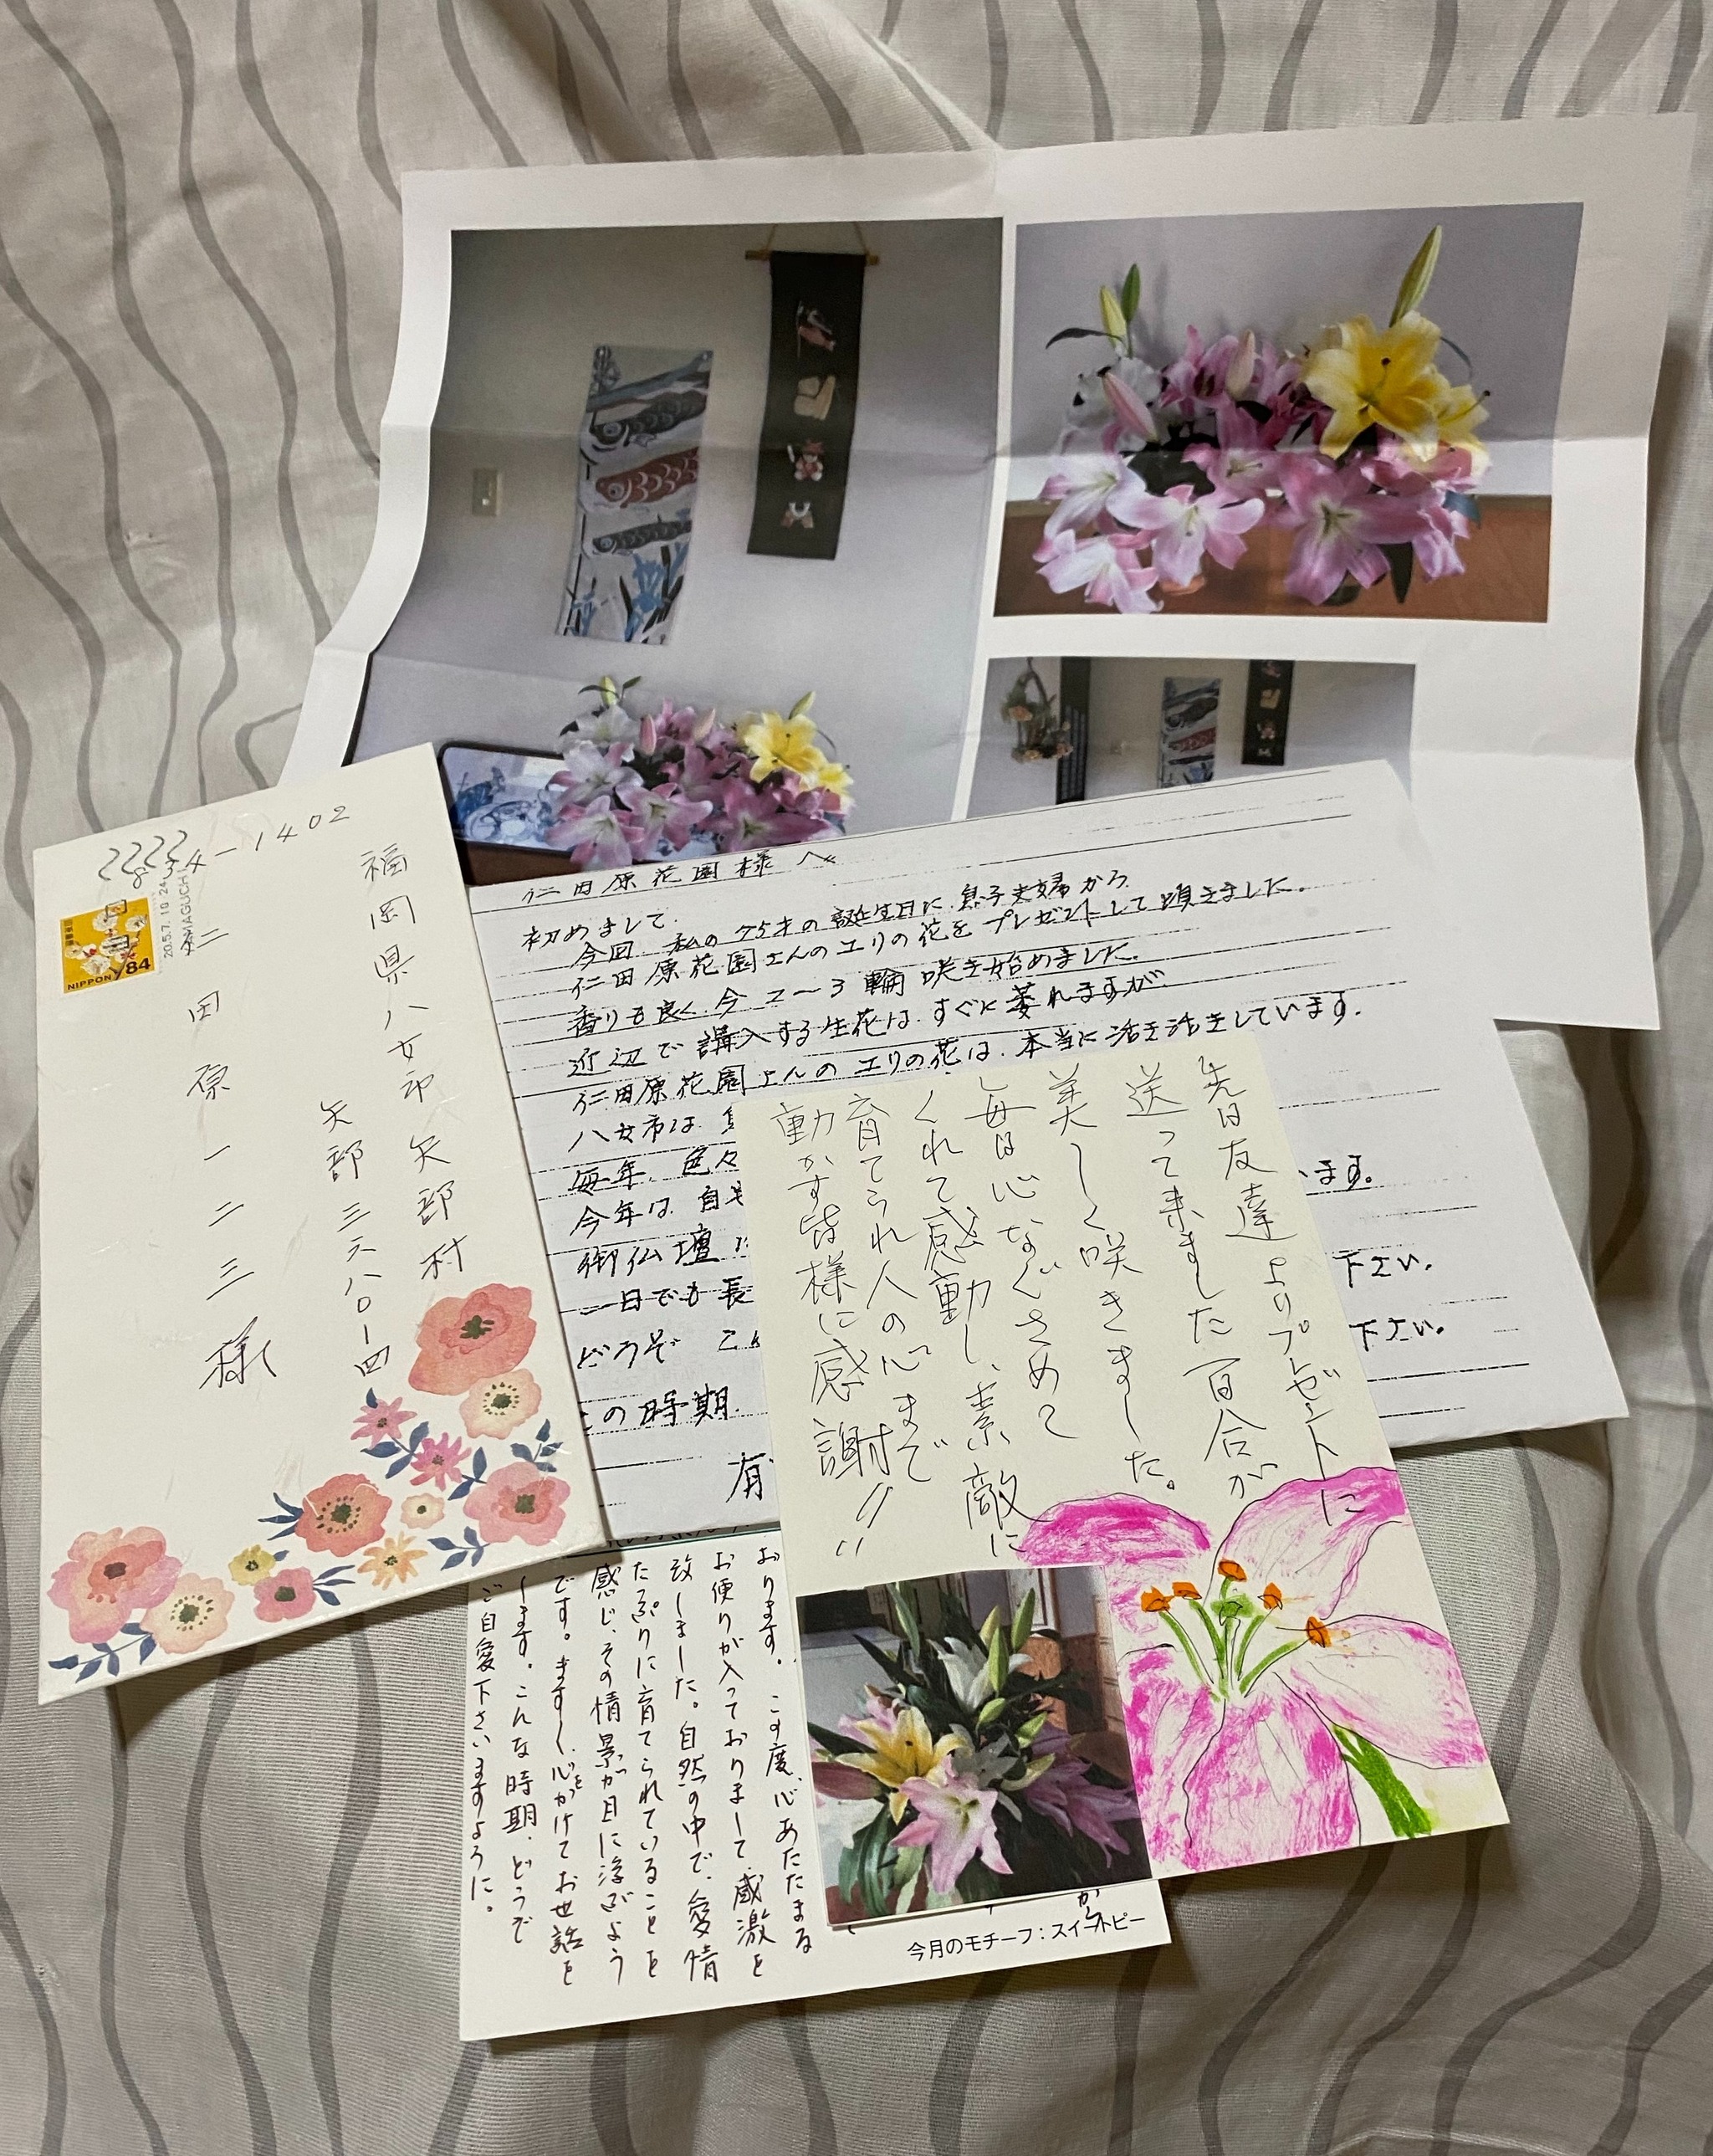 834-1402
福岡県八女市矢部村
矢部三六八〇-四
仁田原一二三様
NIPPON 84
YAMAGUCHI
仁田原花園様へ
初めまして
今回、私の75才の誕生日に、息子夫婦から
仁田原花園さんのユリの花をプレゼントして頂きました。
香りも良く、今2〜3輪咲き始めました。
近辺で購入する生花は、すぐに萎れますが、
仁田原花園さんのユリの花は、本当に活き活きしています。
八女市は、
毎年、色々
います。
今年は、自
御仏壇
下さい。
一日でも長
どうぞ
下さい。
この時期、
有
先日友達よりプレゼントに
送って来ました百合が
美しく咲きました。
毎日心なぐさめて
くれて感動し、素敵に
育てられ人の心まで
動かす皆様に感謝!!
おります。この度、心あたたまる
お便りが入っておりまして、感激を
致しました。自然の中で、愛情
たっぷりに育てられていることを
感じ、その情景が目に浮ぶよう
です。ますます心をかけてお世話を
します。こんな時期、どうぞ
ご自愛下さいますように。
から
今月のモチーフ：スイートピー